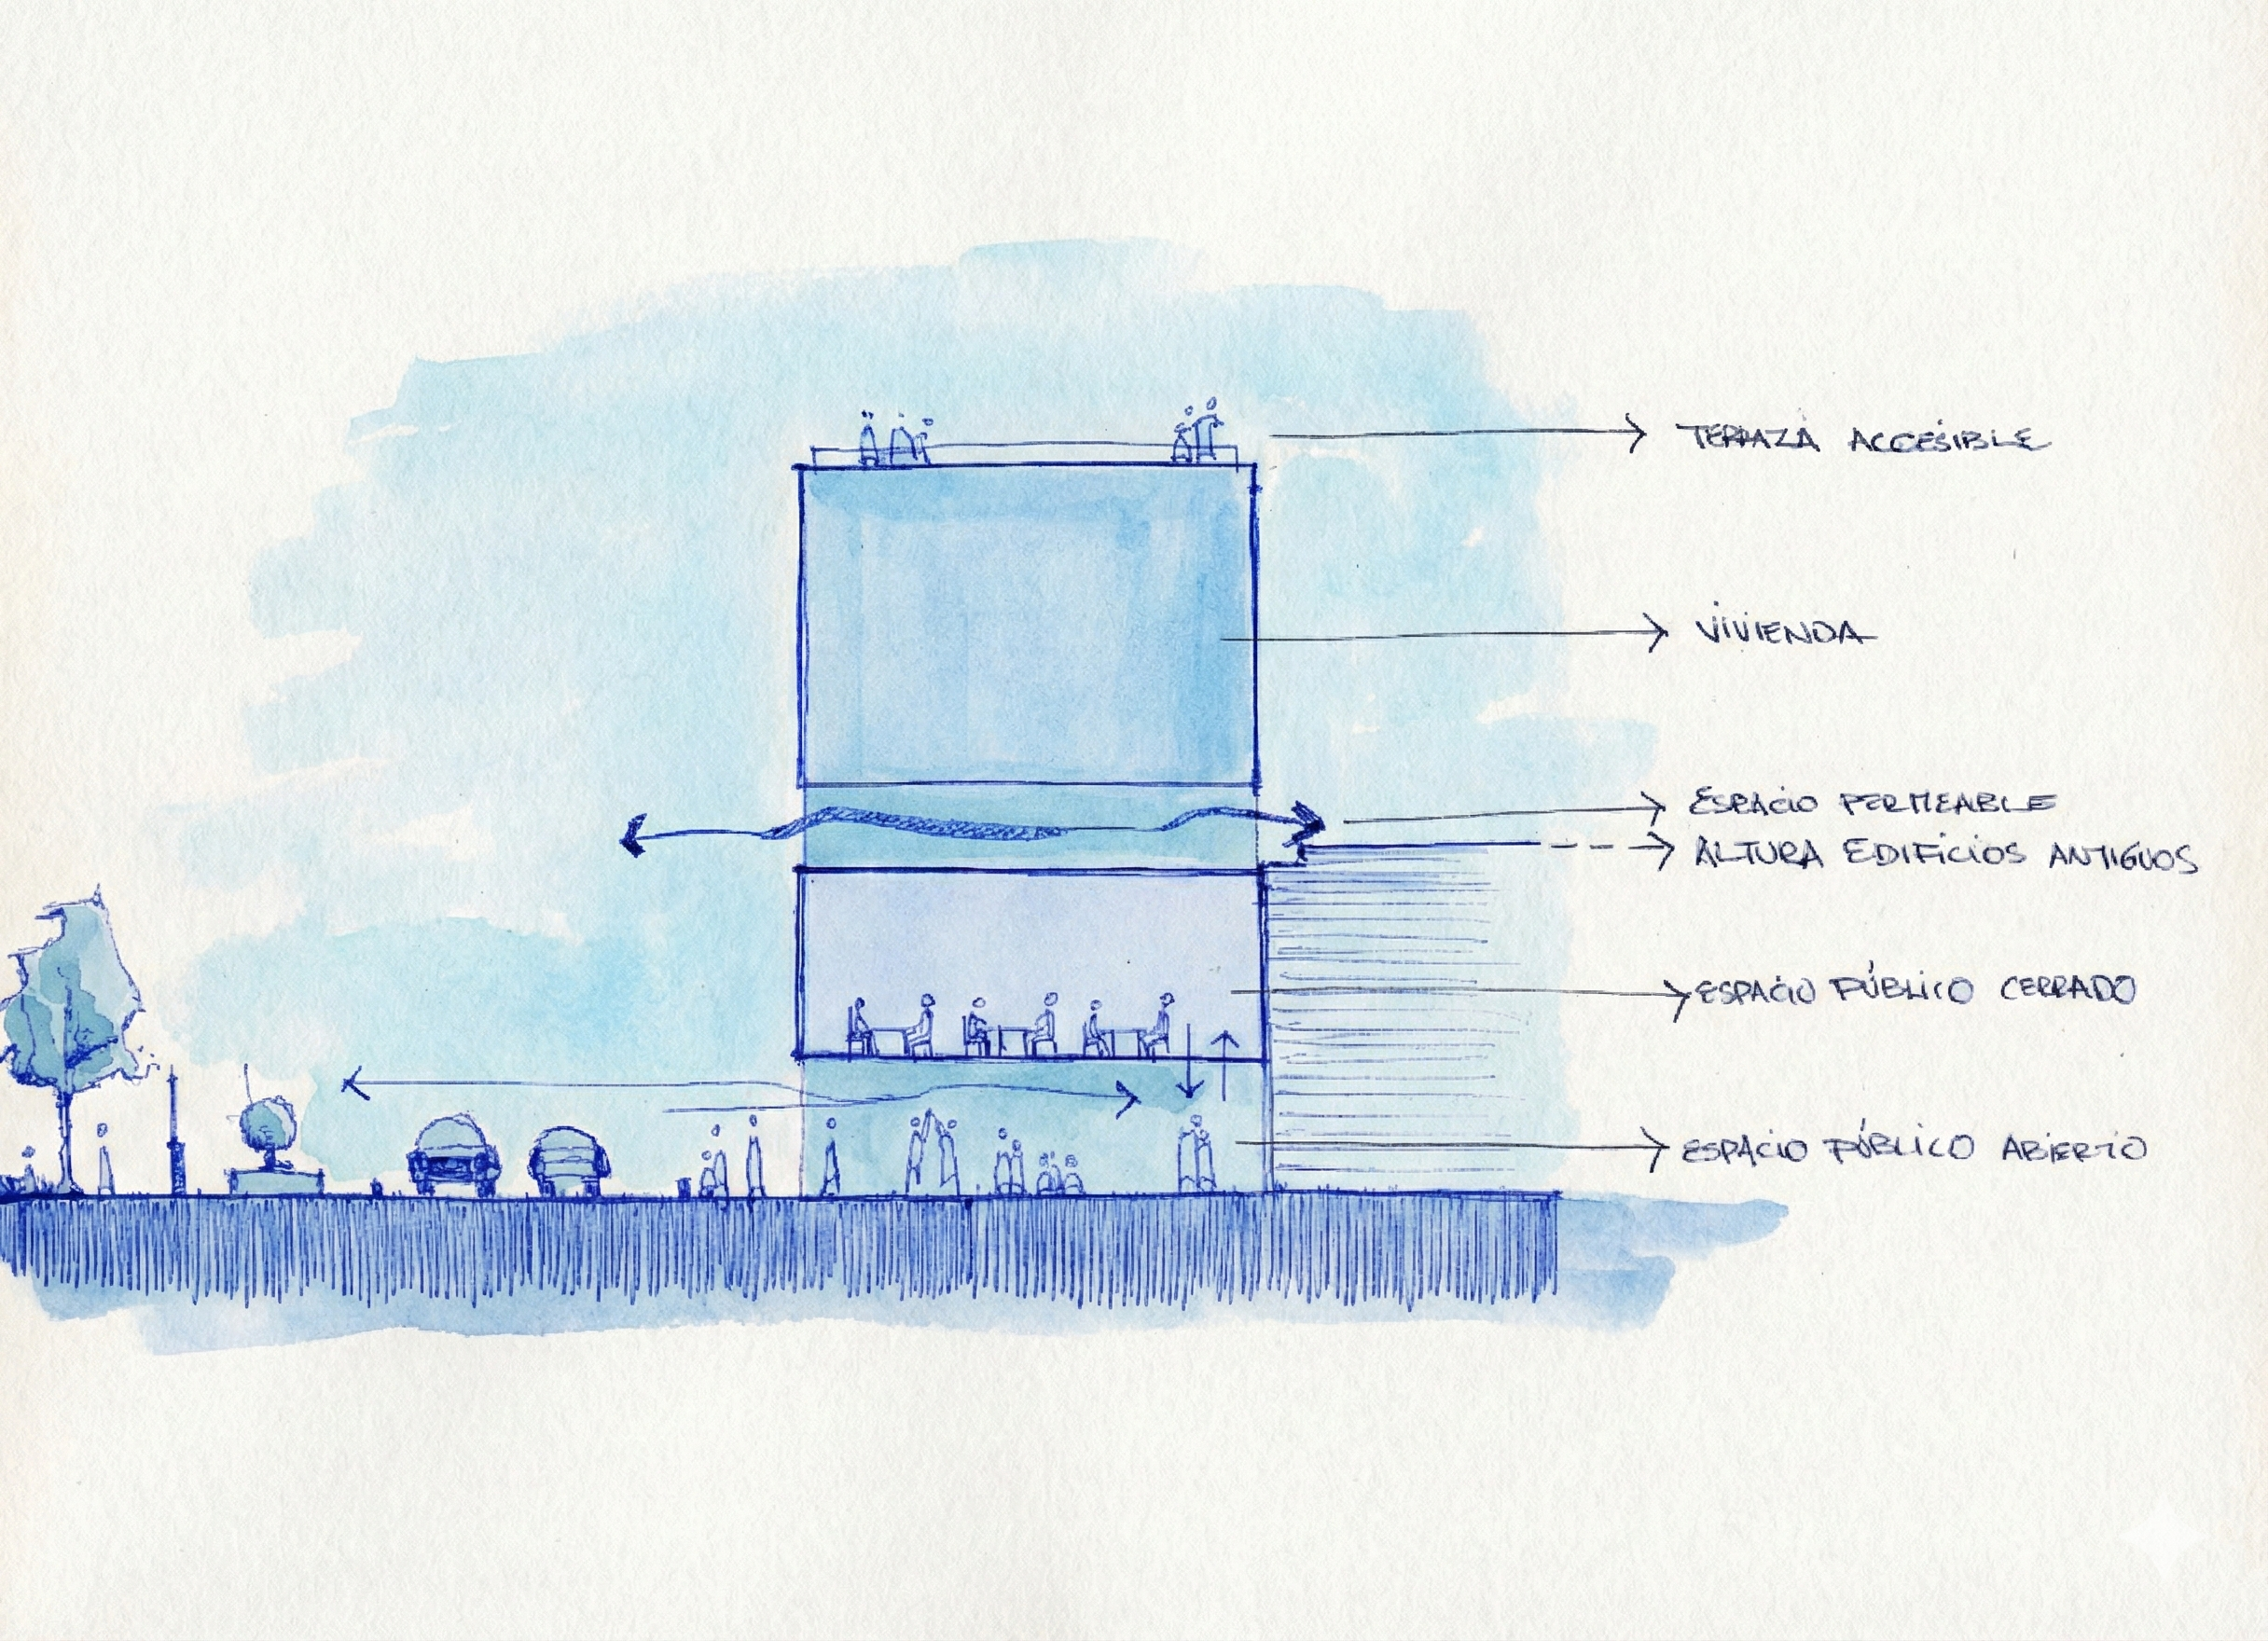 TERRAZA ACCESIBLE
VIVIENDA
ESPACIO PERMEABLE
ALTURA EDIFICIOS ANTIGUOS
ESPACIO PÚBLICO CERRADO
ESPACIO PÚBLICO ABIERTO